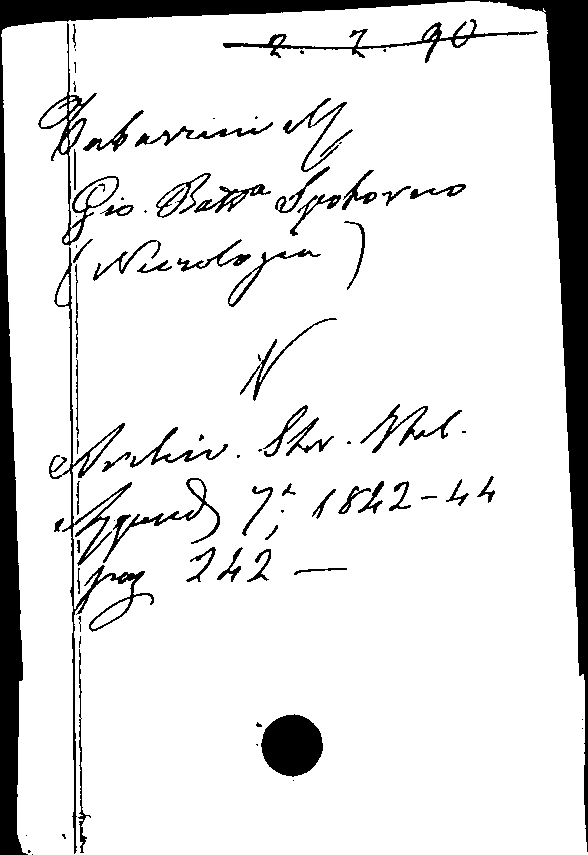 2. 2. 90
Tabarrini M
Gio. Batta Spotorno
(Necrologia)
N
Archiv. Stor. Ital.
Append 1842-44
pag 242 —